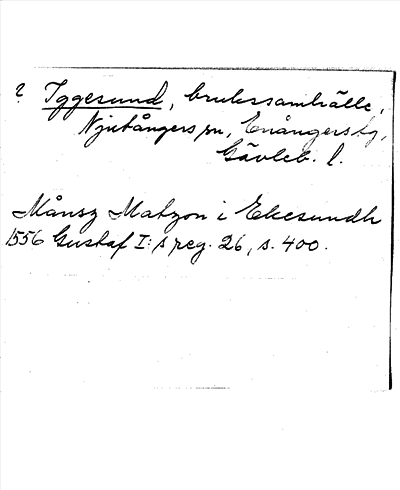 ? Iggesund, brukssamhälle,
Njutångers sn, Enångers tg,
Gävleb. l.
Månsz Matzon i Ekesundh
1556 Gustaf I:s reg. 26, s. 400.